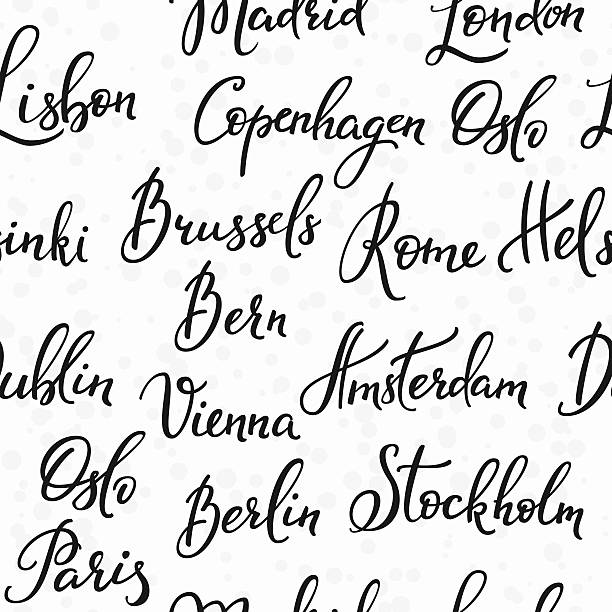 Madrid London
Lisbon Copenhagen Oslo L
sinki Brussels Rome Hels
Bern
Dublin Vienna Amsterdam D
Oslo Berlin Stockholm
Paris